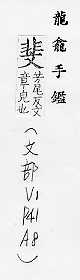 龍龕手鑑
斐 芳尾反文
章皃也
(文部V1
P41
A8)